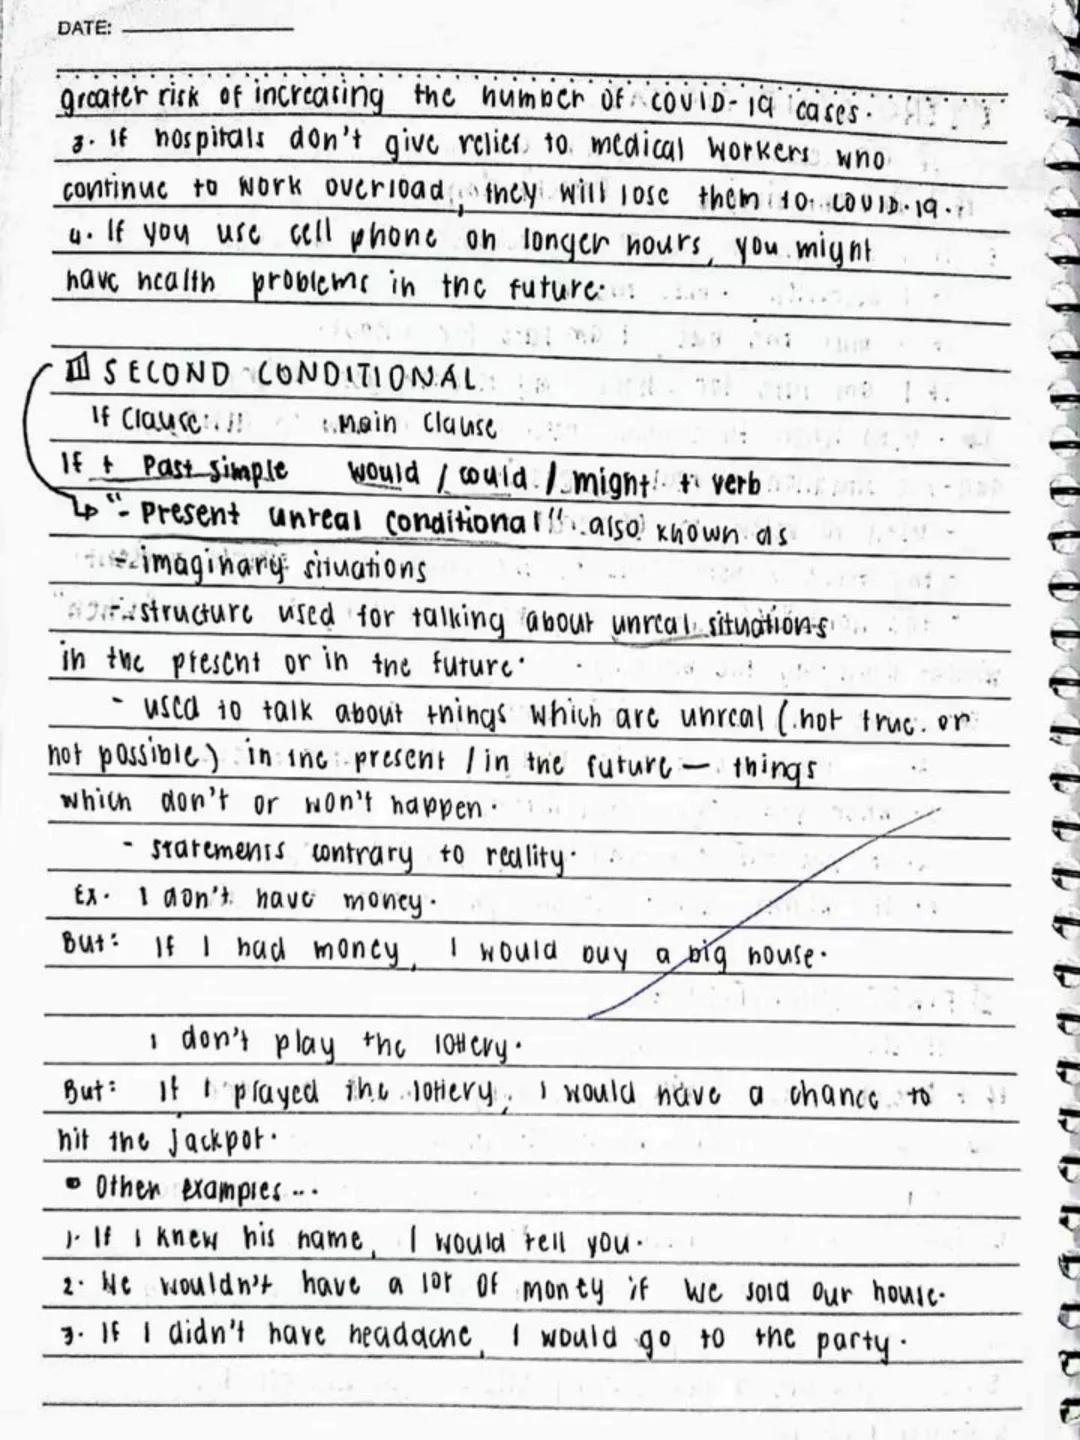 DATE:
greater risk of increasing the number of COVID-19 cases.
3. If hospitals don't give relief to medical workers who
continue to work overload, they will lose them to COVID-19.
4. If you use cell phone on longer hours, you might
have health problems in the future.
III SECOND CONDITIONAL
If Clause Main Clause
If + Past Simple would / could / might + verb
"Present unreal conditional" also known as
- imaginary situations
- structure used for talking about unreal situations
in the present or in the future.
- used to talk about things which are unreal (not true or
not possible) in the present / in the future — things
which don't or won't happen.
- statements contrary to reality.
Ex. I don't have money.
But: If I had money, I would buy a big house.
I don't play the lottery.
But: If I played the lottery, I would have a chance to
hit the jackpot.
• Other examples...
1. If I knew his name, I would tell you.
2. We wouldn't have a lot of money if we sold our house.
3. If I didn't have headache, I would go to the party.